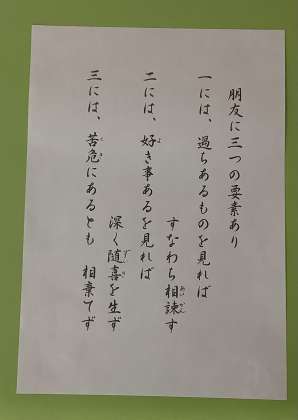 朋友に三つの要素あり
一には、過ちあるものを見れば
すなわち相諫す
二には、好き事あるを見れば
深く随喜を生ず
三には、苦危にあるとも 相棄てず